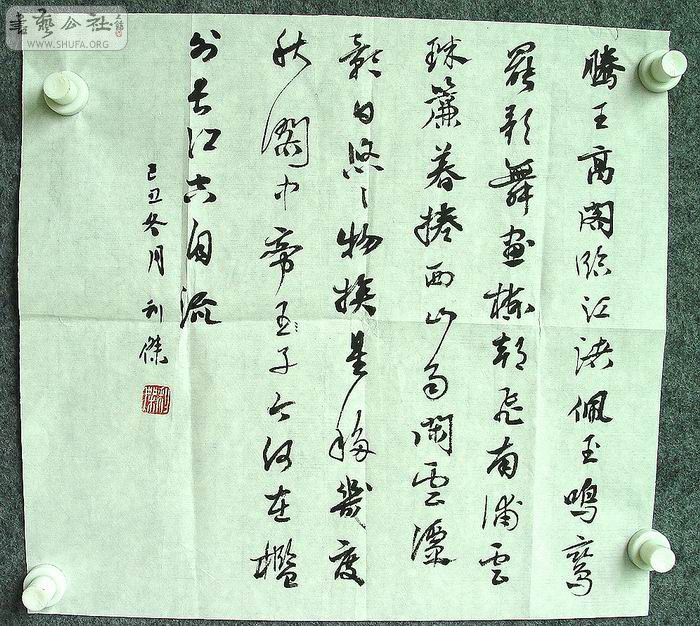 書藝公社
WWW.SHUFA.ORG
騰王高閣臨江渚佩玉鳴鸞
罷歌舞畫棟朝飛南浦雲
珠簾暮捲西山雨閑雲潭
影日悠〻物換星移幾度
秋閣中帝王子今何在檻
外長江空自流
己丑冬月 利傑